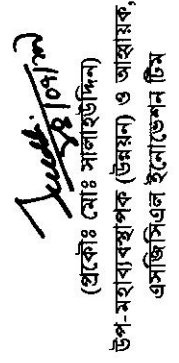 (প্রকৌঃ মোঃ সালাহউদ্দিন)
উপ-মহাব্যবস্থাপক (উন্নয়ন) ও আহ্বায়ক,
এসজিসিএল ইনোভেশন টিম